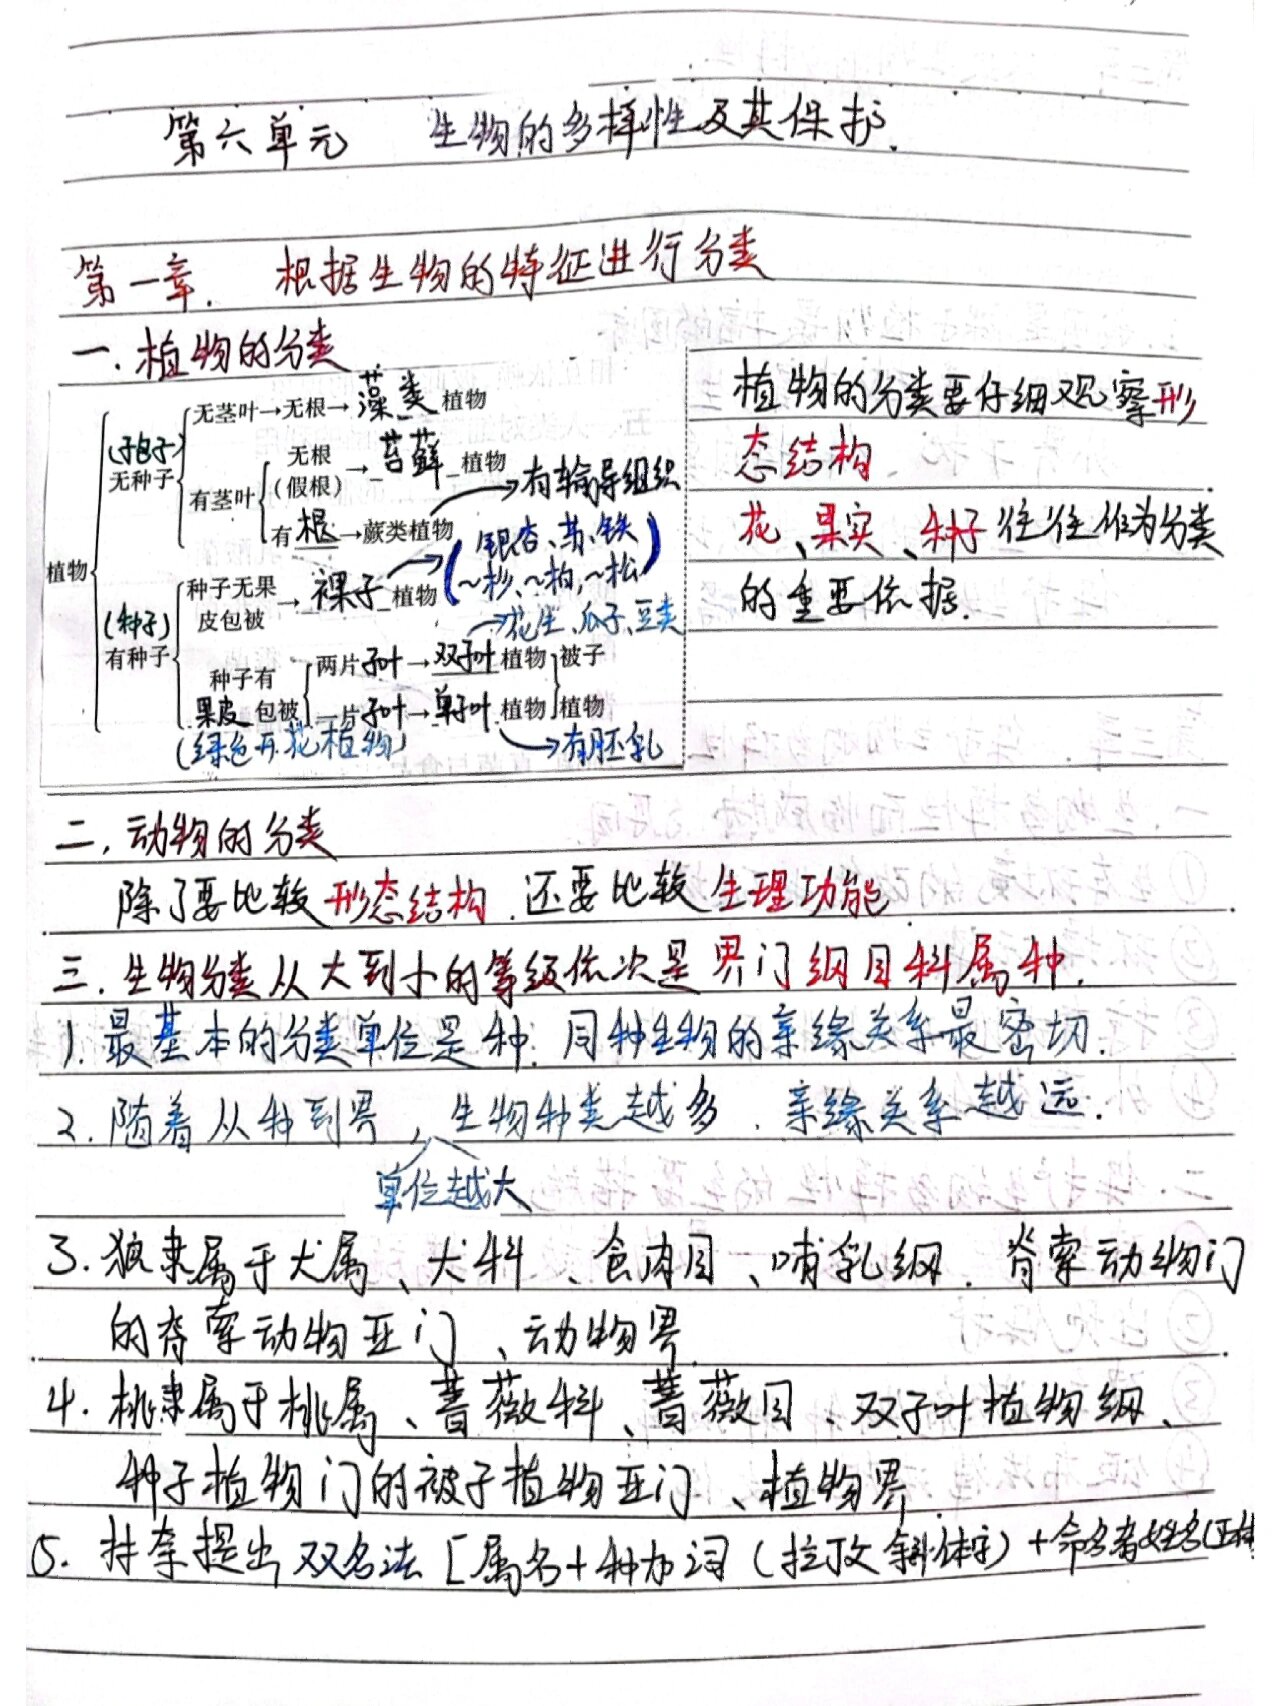 第六单元 生物的多样性及其保护.
第一章. 根据生物的特征进行分类
一. 植物的分类
植物
(孢子)
无种子
无茎叶→无根→藻类植物
有茎叶
无根
(假根)
→苔藓植物
有根→蕨类植物
→有输导组织
(种子)
有种子
种子无果
皮包被
→裸子植物
(银杏、苏铁
~杉、~柏,~松)
→花生、瓜子、豆类
种子有
果皮包被
两片子叶→双子叶植物
一片子叶→单子叶植物
被子
植物
(绿色开花植物)
→有胚乳
植物的分类要仔细观察形
态结构
花、果实、种子往往作为分类
的重要依据.
二. 动物的分类
除了要比较形态结构.还要比较生理功能
三. 生物分类从大到小的等级依次是界门纲目科属种.
1. 最基本的分类单位是种.同种生物的亲缘关系最密切.
2. 随着从种到界,生物种类越多.亲缘关系越远.
单位越大
3. 狼隶属于犬属、犬科、食肉目、哺乳纲.脊索动物门
的脊索动物亚门、动物界.
4. 桃隶属于桃属、蔷薇科、蔷薇目、双子叶植物纲、
种子植物门的被子植物亚门、植物界
5. 林奈提出双名法[属名+种加词(拉丁文斜体字)+命名者姓名(正体